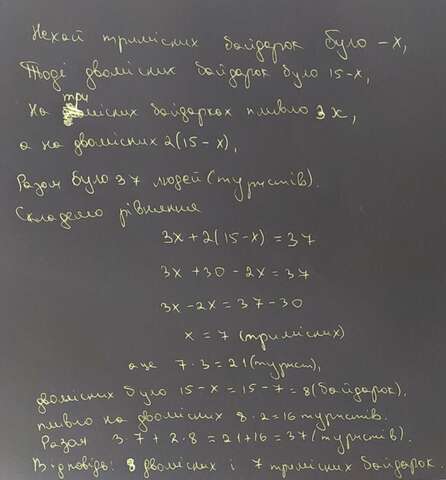 Нехай тримісних байдарок було - x,
Тоді двомісних байдарок було 15-x,
На тримісних байдарках пливло 3x,
а на двомісних 2(15-x),
Разом було 37 людей (туристів).
Складемо рівняння
3x+2(15-x)=37
3x+30-2x=37
3x-2x=37-30
x=7 (тримісних)
а це 7·3=21 (турист),
двомісних було 15-x=15-7=8 (байдарок),
пливло на двомісних 8·2=16 туристів.
Разом 3·7+2·8=21+16=37 (туристів).
Відповідь: 8 двомісних і 7 тримісних байдарок.